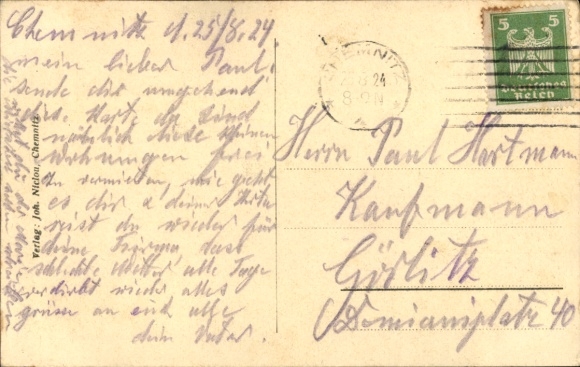 Chemnitz d. 25/8. 24
mein lieber Paul.
sende dir umgehend
diese Karte da sind
nämlich diese kleinen
Wohnungen frei
zu vermieten, wie geht
es dir & deiner
reist du wieder für
deine Firma das
schlechte Wetter alle Tage
verdirbt wieder alles
grüsse an euch alle
dein Vater.
Verlag: Joh. Niclou, Chemnitz
CHEMNITZ
24
8-9N
5 5
Deutsches
Reich
Herrn Paul Hartmann
Kaufmann
Görlitz
Demianiplatz 40